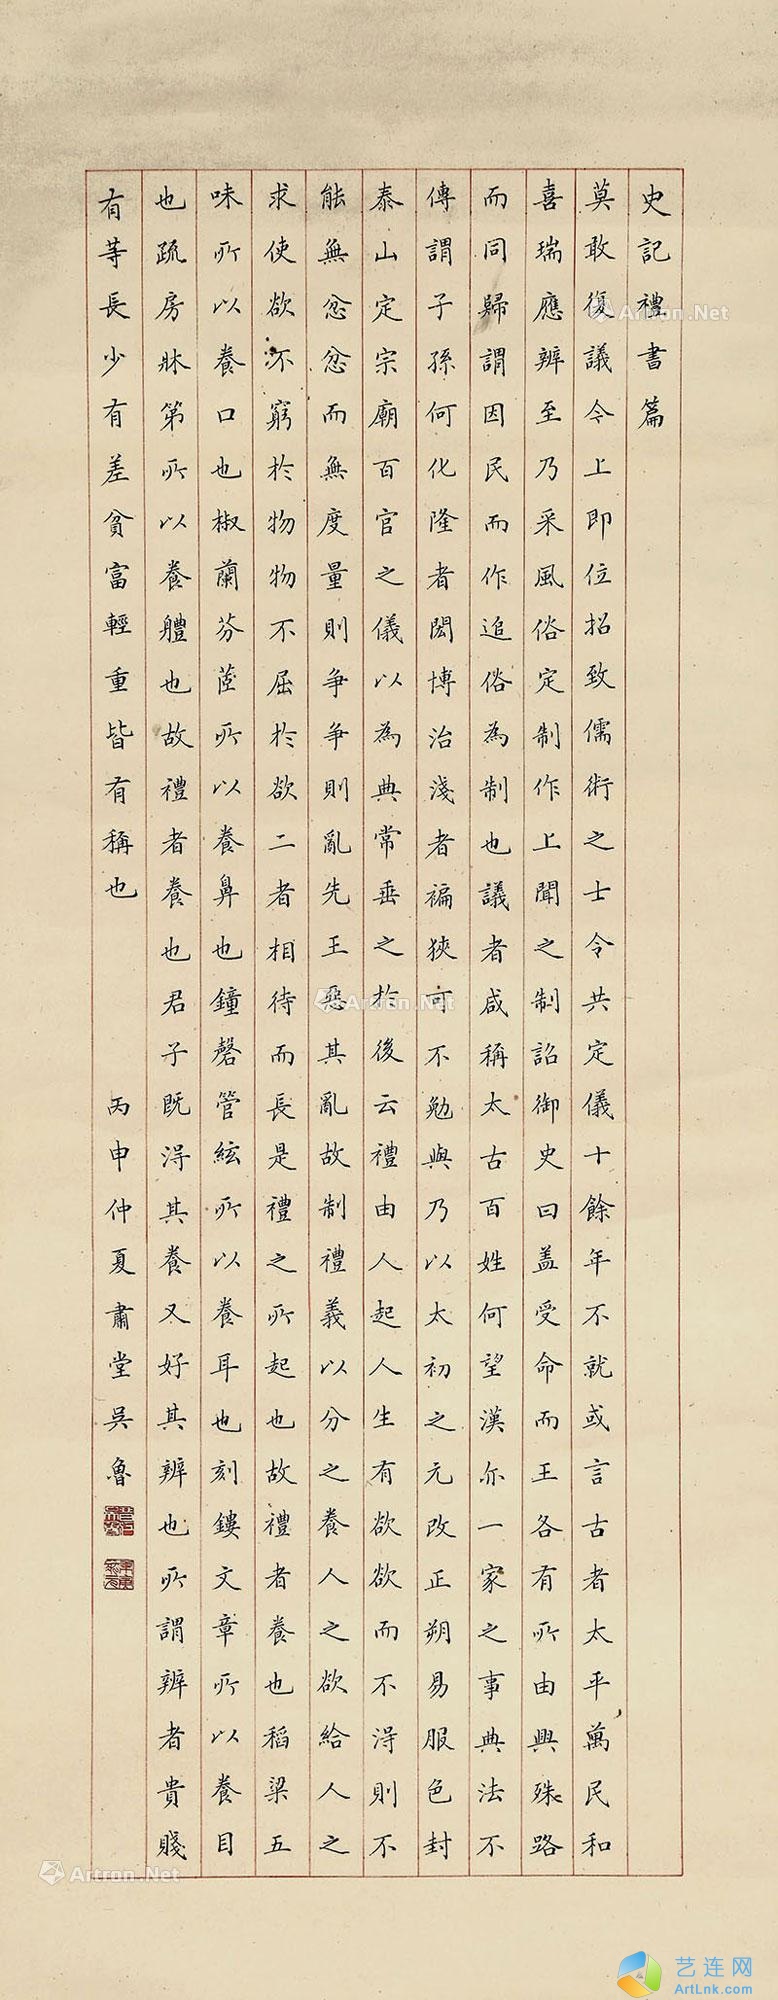 史記禮書篇
莫敢復議今上即位招致儒術之士令共定儀十餘年不就或言古者太平萬民和
喜瑞應辨至乃采風俗定制作上聞之制詔御史曰盖受命而王各有所由興殊路
而同歸謂因民而作追俗為制也議者咸稱太古百姓何望漢亦一家之事典法不
傳謂子孫何化隆者閎博治淺者褊狹可不勉與乃以太初之元改正朔易服色封
泰山定宗廟百官之儀以為典常垂之於後云禮由人起人生有欲欲而不淂則不
能無忿忿而無度量則争争則亂先王惡其亂故制禮義以分之養人之欲給人之
求使欲不窮於物物不屈於欲二者相待而長是禮之所起也故禮者養也稻粱五
味所以養口也椒蘭芬茝所以養鼻也鐘磬管絃所以養耳也刻鏤文章所以養目
也疏房牀第所以養軆也故禮者養也君子既淂其養又好其辨也所謂辨者貴賤
有等長少有差貧富輕重皆有稱也
丙申仲夏肅堂吳魯
Artron.Net
Artron.Net
Artron.Net
艺连网
ArtLnk.com